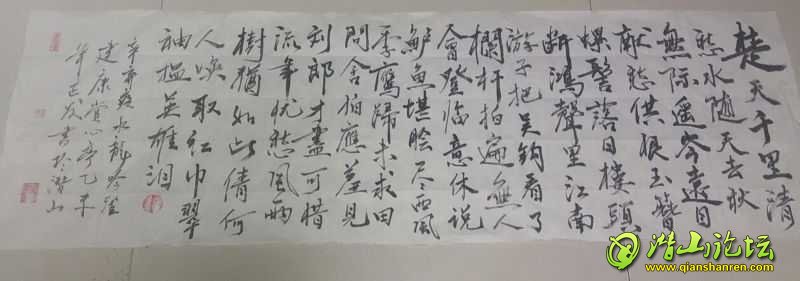 楚天千里清
愁水随天去秋
無际遥岑遠目
献愁供恨玉簪
螺髻落日樓頭
断鴻聲里江南
游子把吴鈎看了
欄杆拍遍無人
會登临意休説
鲈魚堪脍尽西風
季鹰歸未求田
問舍怕應羞見
刘郎才盡可惜
流年忧愁風雨
樹猶如此倩何
人唤取红巾翠
袖揾英雄泪
辛弃疾水龍吟登
建康赏心亭乙未
年 書於潜山
潜山论坛
www.qianshanren.com